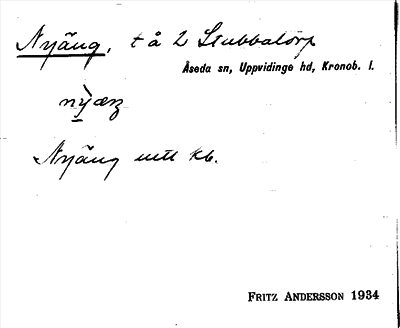 Nyäng, t å 2 Stubbatorp
Åseda sn, Uppvidinge hd, Kronob. l.
Nyäng enl kb.
FRITZ ANDERSSON 1934